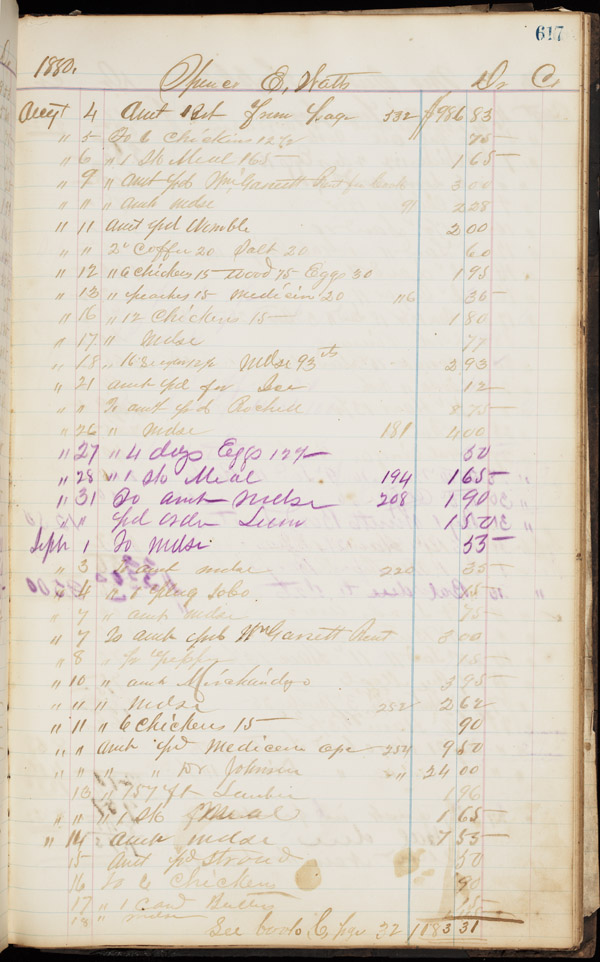 617
1880. Spencer E. Watts Dr Cr
Augt 4 Amt Bt from Page 532 $986 83
" 5 To 6 Chickins 12½ 75
" 6 " 1 Sk Meal 165 1 65
" 9 " amt pd Wm Garrett Rent for 3 00
" " " amt mdse 91 2 28
" 11 amt pd Womble 2 00
" " 2# Coffee 20 Salt 20 60
" 12 " 6 chickens 15 Wood 75 Eggs 30 1 95
" 13 " peaches 15 medicin 20 116 35
" 16 " 12 Chickens 15 1 80
" 17 " Mdse 77
" 18 " Mdse 93 cts 2 93
" 21 amt pd for Ice 12
" " To amt pd Rochell 8 75
" 26 " Mdse 181 4 00
" 27 " 4 doz Eggs 12½ 50
" 28 " 1 Sk Meal 194 1 65
" 31 To amt mdse 208 1 90
" " pd order 1 50
Sept 1 To Mdse 55
" 3 " amt mdse 220 35
" 4 " 1 plug Tobo
" 7 " amt mdse 75
" 7 To amt pd Wm Garrett Rent 3 00
" 8 " pr 15
" 10 " amt Mirchandyo 3 95
" " " mdse 252 2 62
" 11 " 6 Chickens 15 90
" " amt pd Medicen ope 254 9 50
" " " " Dr Johnson " 24 00
13 " 757 ft Lumber 1 96
" " " 1 Sk Meal 1 65
" 14 amt mdse 7 55
15 amt pd Stroud 50
16 To 6 Chickens 90
17 " 1 15
18 " mdse
See book C, page 32 1183 31